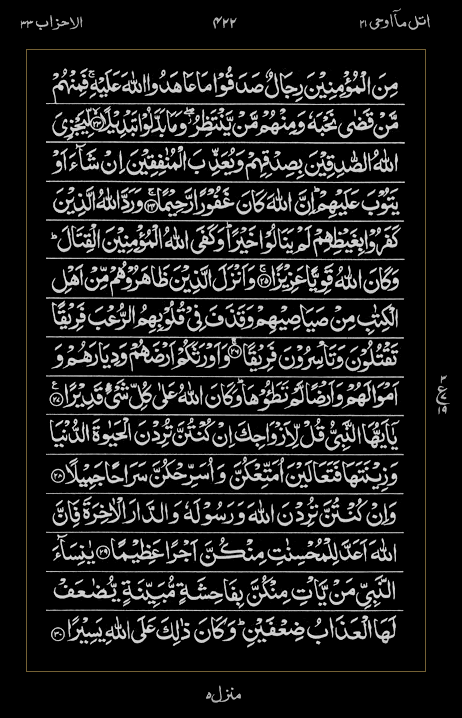 اتل مآ اوحی ۲۱ ۴۲۲ الاحزاب ۳۳
مِنَ الْمُؤْمِنِیْنَ رِجَالٌ صَدَقُوْا مَا عَاهَدُوا اللّٰهَ عَلَیْهِ ۚ فَمِنْهُمْ
مَّنْ قَضٰی نَحْبَهٗ وَمِنْهُمْ مَّنْ یَّنْتَظِرُ ۖ وَمَا بَدَّلُوْا تَبْدِیْلًا ﴿۲۳﴾ لِّیَجْزِیَ
اللّٰهُ الصّٰدِقِیْنَ بِصِدْقِهِمْ وَیُعَذِّبَ الْمُنٰفِقِیْنَ اِنْ شَآءَ اَوْ
یَتُوْبَ عَلَیْهِمْ ؕ اِنَّ اللّٰهَ کَانَ غَفُوْرًا رَّحِیْمًا ﴿۲۴﴾ وَرَدَّ اللّٰهُ الَّذِیْنَ
کَفَرُوْا بِغَیْظِهِمْ لَمْ یَنَالُوْا خَیْرًا ؕ وَکَفَی اللّٰهُ الْمُؤْمِنِیْنَ الْقِتَالَ ؕ
وَکَانَ اللّٰهُ قَوِیًّا عَزِیْزًا ﴿۲۵﴾ وَاَنْزَلَ الَّذِیْنَ ظَاهَرُوْهُمْ مِّنْ اَهْلِ
الْکِتٰبِ مِنْ صَیَاصِیْهِمْ وَقَذَفَ فِیْ قُلُوْبِهِمُ الرُّعْبَ فَرِیْقًا
تَقْتُلُوْنَ وَتَاْسِرُوْنَ فَرِیْقًا ﴿۲۶﴾ وَاَوْرَثَکُمْ اَرْضَهُمْ وَدِیَارَهُمْ وَ
اَمْوَالَهُمْ وَاَرْضًا لَّمْ تَطَـُٔوْهَا ؕ وَکَانَ اللّٰهُ عَلٰی کُلِّ شَیْءٍ قَدِیْرًا ﴿۲۷﴾
یٰۤاَیُّهَا النَّبِیُّ قُلْ لِّاَزْوَاجِکَ اِنْ کُنْتُنَّ تُرِدْنَ الْحَیٰوةَ الدُّنْیَا
وَزِیْنَتَهَا فَتَعَالَیْنَ اُمَتِّعْکُنَّ وَاُسَرِّحْکُنَّ سَرَاحًا جَمِیْلًا ﴿۲۸﴾
وَاِنْ کُنْتُنَّ تُرِدْنَ اللّٰهَ وَرَسُوْلَهٗ وَالدَّارَ الْاٰخِرَةَ فَاِنَّ
اللّٰهَ اَعَدَّ لِلْمُحْسِنٰتِ مِنْکُنَّ اَجْرًا عَظِیْمًا ﴿۲۹﴾ یٰنِسَآءَ
النَّبِیِّ مَنْ یَّاْتِ مِنْکُنَّ بِفَاحِشَةٍ مُّبَیِّنَةٍ یُّضٰعَفْ
لَهَا الْعَذَابُ ضِعْفَیْنِ ؕ وَکَانَ ذٰلِکَ عَلَی اللّٰهِ یَسِیْرًا ﴿۳۰﴾
۳
ع
۱۹
منزل ۵